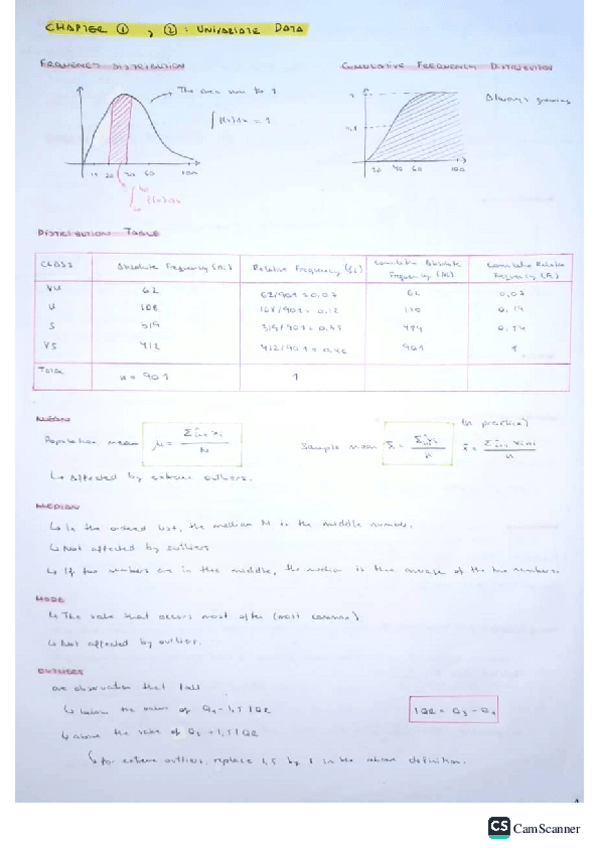 CHAPTER ①, ②: UNIVARIATE DATA
FREQUENCY DISTRIBUTION
CUMULATIVE FREQUENCY DISTRIBUTION
The area sum to 1
∫ f(x)dx = 1
Always growing
20 30 60 100
20 40 60 100
DISTRIBUTION TABLE
CLASS Absolute Frequency Relative Frequency Cumulative Absolute Frequency Cumulative Relative Frequency
VU 62 62/901 = 0,07 62 0,07
U 108 108/901 = 0,12
S 319
VS 412 901 1
TOTAL n = 901 1
MEAN
Population mean μ =
Sample mean x̄ =
In practice
↳ Affected by extreme outliers.
MEDIAN
↳ In the ordered list, the median M is the middle number.
↳ Not affected by outliers
↳ If two numbers are in the middle, the median is the average of the two numbers.
MODE
↳ The value that occurs most often (most common)
↳ Not affected by outliers.
OUTLIERS
are observation that fall
↳ below the value of Q₁ - 1,5 IQR
IQR = Q₃ - Q₁
↳ above the value of Q₃ + 1,5 IQR
↳ For extreme outliers, replace 1,5 by 3 in the above definition.
CS CamScanner